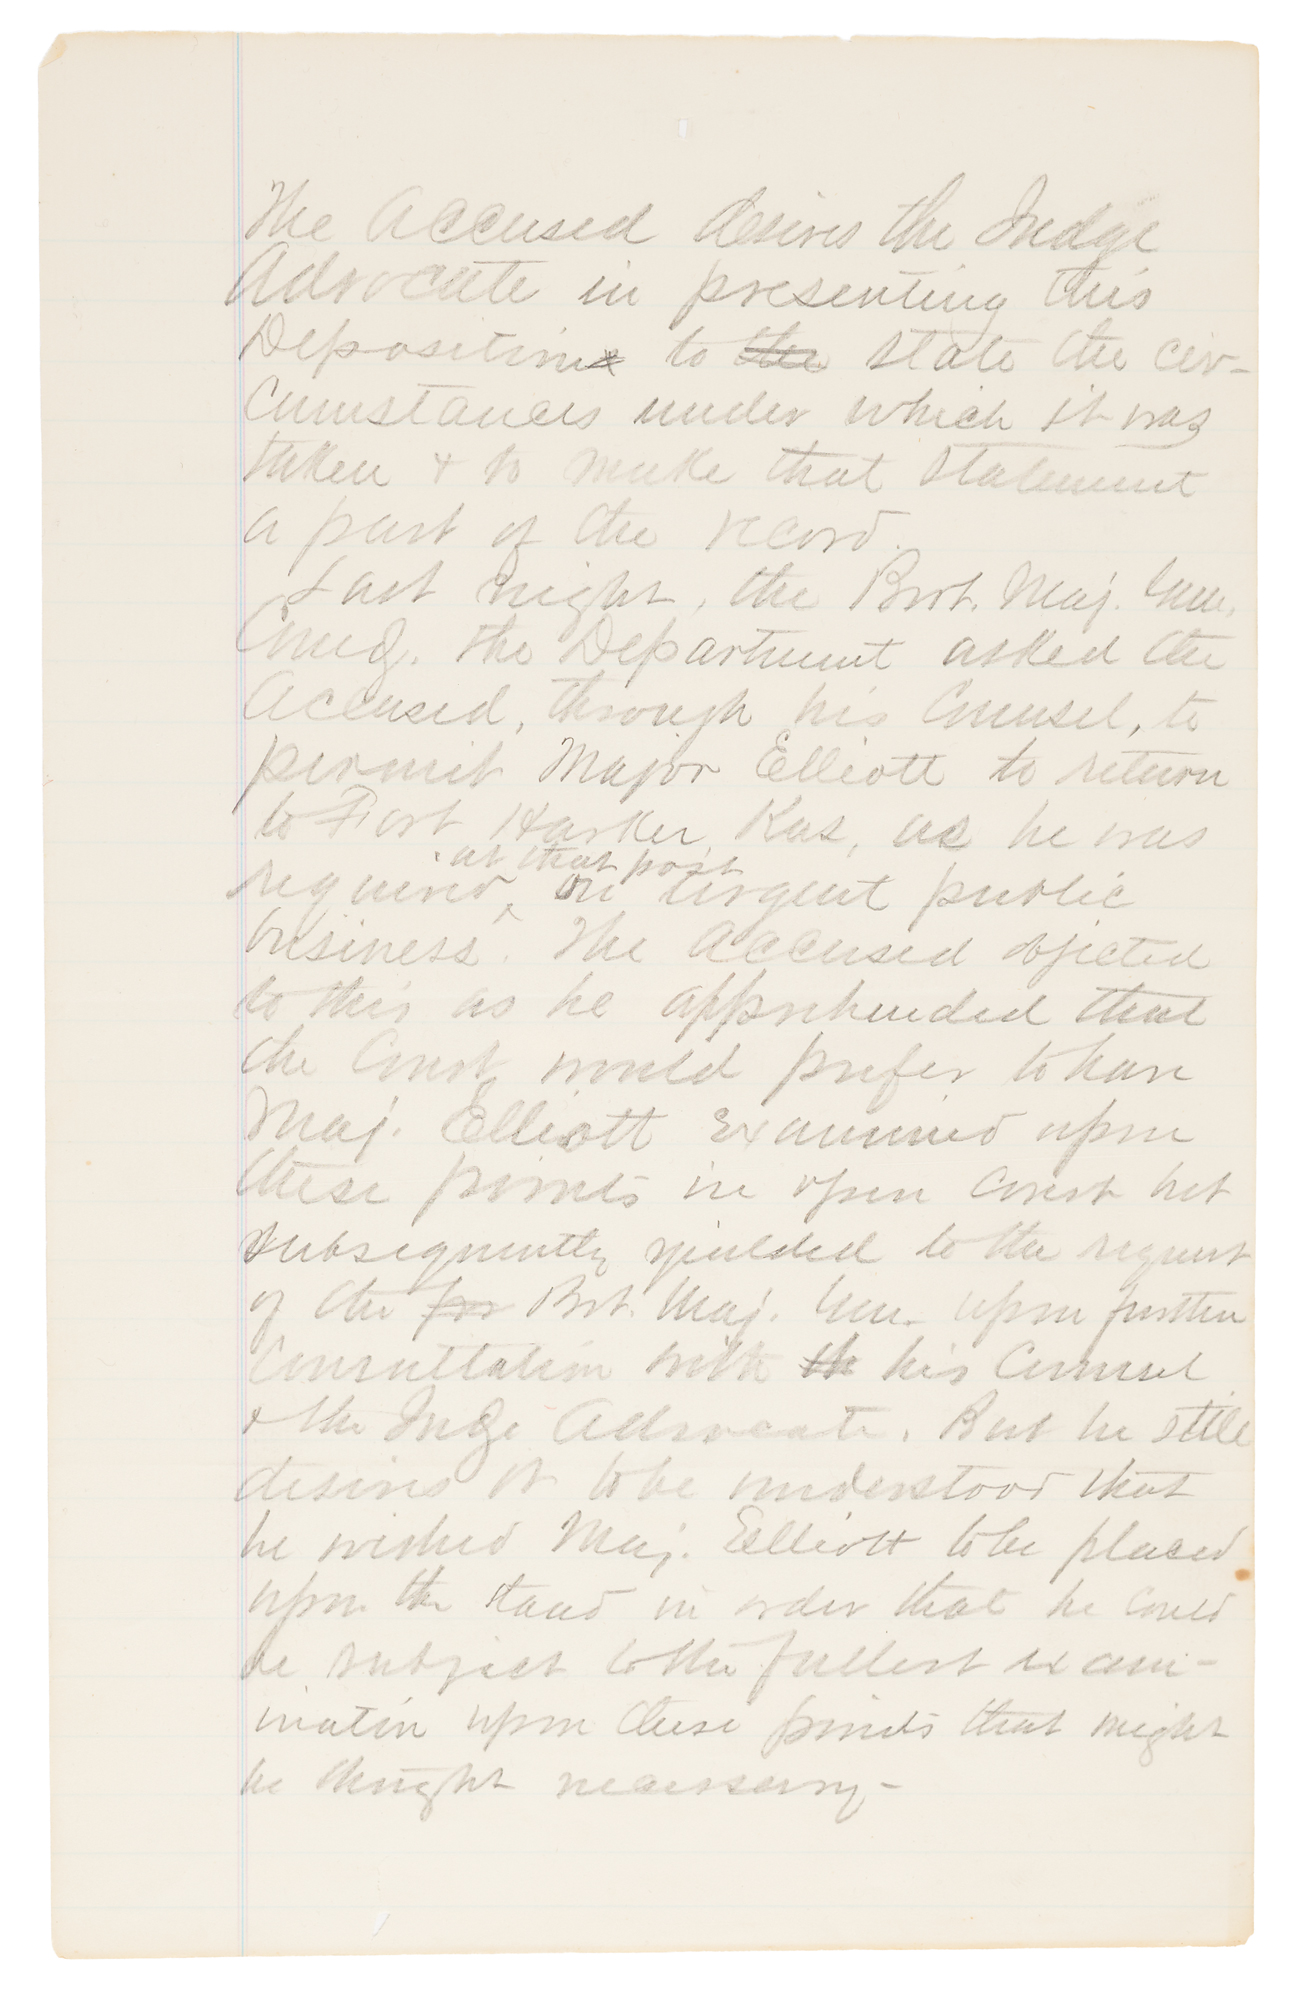 The Accused desires the Judge
Advocate in presenting this
Deposition to the state the cir-
cumstances under which it was
taken & to make that statement
a part of the record.
Last night, the Brvt. Maj. Gen.
Comdg. the Department asked the
Accused, through his Counsel, to
permit Major Elliott to return
to Fort Harker, Kas, as he was
at that post
required, on urgent public
business. The Accused objected
to this as he apprehended that
the Court would prefer to have
Maj. Elliott examined upon
these points in open court but
subsequently yielded to the request
of the for Bvt. Maj. Gen. upon further
Consultation with th his Counsel
& the Judge Advocate. But he still
desires it to be understood that
he wished Maj. Elliott to be placed
upon the stand in order that he could
be subject to the fullest exami-
nation upon these points that might
be thought necessary-